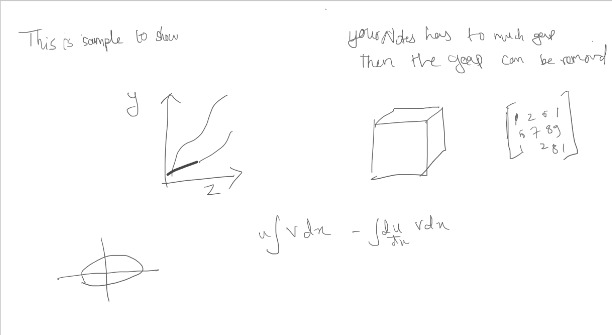 This is sample to show
your Notes has to much gap
then the geap can be removd
y
z
1 2 6 1
5 7 89
1 2 8 1
u∫vdx - ∫du/dx vdx